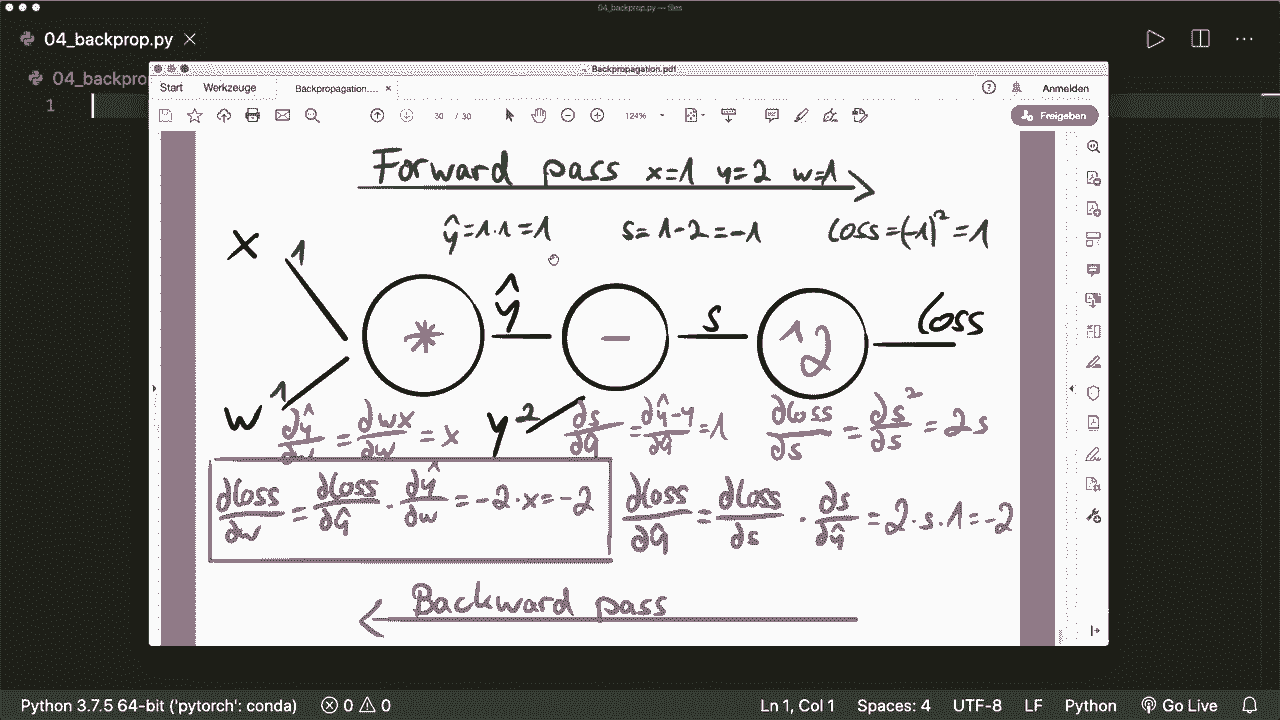 04_backprop.py — files
04_backprop.py
04_backpro
1
Backpropagation.pdf
Start Werkzeuge Backpropagation.... × Anmelden
30 / 30 124% Freigeben
Forward pass x=1 y=2 w=1
ŷ=1·1=1 s=1-2=-1 loss=(-1)²=1
x 1
* ŷ - s ^2 loss
w 1 y 2
∂ŷ/∂w = ∂wx/∂w = x ∂s/∂ŷ = ∂ŷ-y/∂ŷ = 1 ∂loss/∂s = ∂s²/∂s = 2s
∂loss/∂w = ∂loss/∂ŷ · ∂ŷ/∂w = -2·x = -2 ∂loss/∂ŷ = ∂loss/∂s · ∂s/∂ŷ = 2·s·1 = -2
Backward pass
Python 3.7.5 64-bit ('pytorch': conda) 0 0 Ln 1, Col 1 Spaces: 4 UTF-8 LF Python Go Live